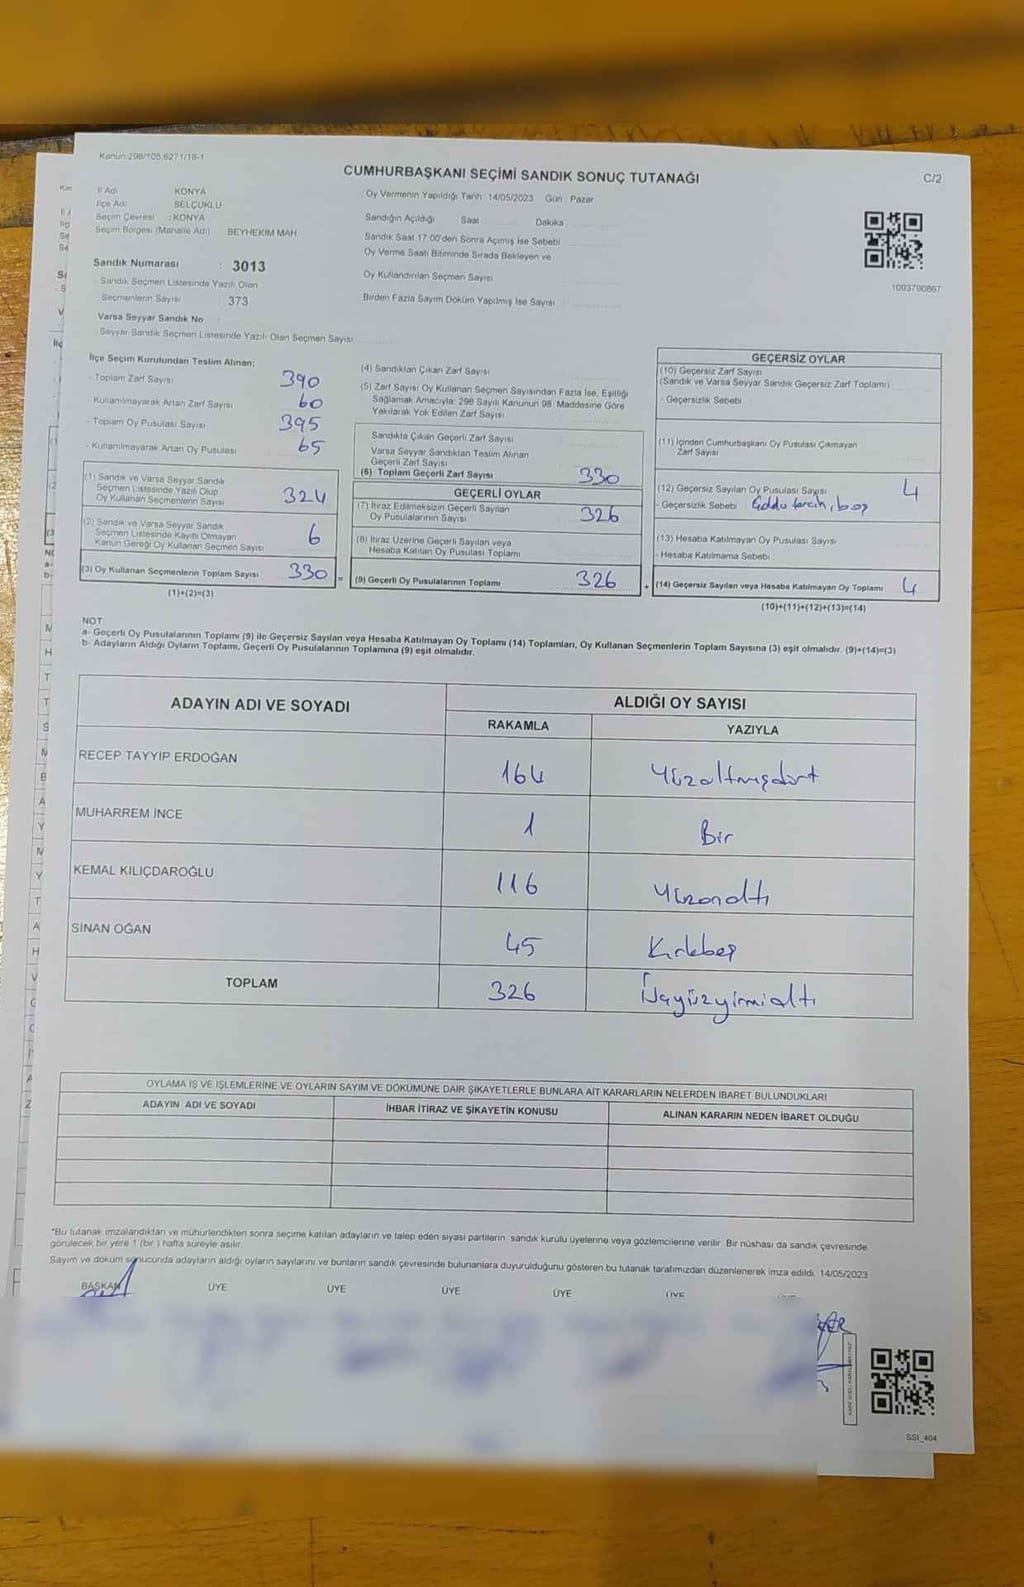 Kanun:298/105:6271/18-1
CUMHURBAŞKANI SEÇİMİ SANDIK SONUÇ TUTANAĞI
C/2
İl Adı KONYA
İlçe Adı SELÇUKLU
Seçim Çevresi : KONYA
Seçim Bölgesi (Mahalle Adı) BEYHEKİM MAH
Sandık Numarası : 3013
- Sandık Seçmen Listesinde Yazılı Olan
Seçmenlerin Sayısı : 373
Varsa Seyyar Sandık No
- Seyyar Sandık Seçmen Listesinde Yazılı Olan Seçmen Sayısı
Oy Vermenin Yapıldığı Tarih :14/05/2023 Gün : Pazar
Sandığın Açıldığı Saat Dakika
Sandık Saat 17:00'den Sonra Açımış İse Sebebi
Oy Verme Saati Bitiminde Sırada Bekleyen ve
Oy Kullandırılan Seçmen Sayısı
Birden Fazla Sayım Döküm Yapılmış İse Sayısı
1093790867
İlçe Seçim Kurulundan Teslim Alınan;
- Toplam Zarf Sayısı 390
- Kullanılmayarak Artan Zarf Sayısı 60
- Toplam Oy Pusulası Sayısı 395
- Kullanılmayarak Artan Oy Pusulası 65
(1) Sandık ve Varsa Seyyar Sandık
Seçmen Listesinde Yazılı Olup
Oy Kullanan Seçmenlerin Sayısı 324
(2) Sandık ve Varsa Seyyar Sandık
Seçmen Listesinde Kayıtlı Olmayan
Kanun Gereği Oy Kullanan Seçmen Sayısı 6
(3) Oy Kullanan Seçmenlerin Toplam Sayısı 330 =
(1)+(2)=(3)
(4) Sandıktan Çıkan Zarf Sayısı
(5) Zarf Sayısı Oy Kullanan Seçmen Sayısından Fazla İse, Eşitliği
Sağlamak Amacıyla; 298 Sayılı Kanunun 98. Maddesine Göre
Yakılarak Yok Edilen Zarf Sayısı
Sandıkta Çıkan Geçerli Zarf Sayısı
Varsa Seyyar Sandıktan Teslim Alınan
Geçerli Zarf Sayısı
(6) Toplam Geçerli Zarf Sayısı 330
GEÇERLİ OYLAR
(7) İtiraz Edilmeksizin Geçerli Sayılan
Oy Pusulalarının Sayısı 326
(8) İtiraz Üzerine Geçerli Sayılan veya
Hesaba Katılan Oy Pusulası Toplamı
(9) Geçerli Oy Pusulalarının Toplamı 326 +
GEÇERSİZ OYLAR
(10) Geçersiz Zarf Sayısı
(Sandık ve Varsa Seyyar Sandık Geçersiz Zarf Toplamı)
- Geçersizlik Sebebi
(11) İçinden Cumhurbaşkanı Oy Pusulası Çıkmayan
Zarf Sayısı
(12) Geçersiz Sayılan Oy Pusulası Sayısı 4
- Geçersizlik Sebebi tercih, boş
(13) Hesaba Katılmayan Oy Pusulası Sayısı
- Hesaba Katılmama Sebebi
(14) Geçersiz Sayılan veya Hesaba Katılmayan Oy Toplamı 4
(10)+(11)+(12)+(13)=(14)
NOT:
a- Geçerli Oy Pusulalarının Toplamı (9) ile Geçersiz Sayılan veya Hesaba Katılmayan Oy Toplamı (14) Toplamları, Oy Kullanan Seçmenlerin Toplam Sayısına (3) eşit olmalıdır. (9)+(14)=(3)
b- Adayların Aldığı Oyların Toplamı, Geçerli Oy Pusulalarının Toplamına (9) eşit olmalıdır.
ADAYIN ADI VE SOYADI
ALDIĞI OY SAYISI
RAKAMLA YAZIYLA
RECEP TAYYİP ERDOĞAN 164 Yüzaltmışdört
MUHARREM İNCE 1 Bir
KEMAL KILIÇDAROĞLU 116 Yüzonaltı
SİNAN OĞAN 45 Kırkbeş
TOPLAM 326 Üçyüzyirmialtı
OYLAMA İŞ VE İŞLEMLERİNE VE OYLARIN SAYIM VE DÖKÜMÜNE DAİR ŞİKAYETLERLE BUNLARA AİT KARARLARIN NELERDEN İBARET BULUNDUKLARI
ADAYIN ADI VE SOYADI İHBAR İTİRAZ VE ŞİKAYETİN KONUSU ALINAN KARARIN NEDEN İBARET OLDUĞU
*Bu tutanak imzalandıktan ve mühürlendikten sonra seçime katılan adayların ve talep eden siyasi partilerin sandık kurulu üyelerine veya gözlemcilerine verilir. Bir nüshası da sandık çevresinde
görülecek bir yere 1 (bir ) hafta süreyle asılır.
Sayım ve döküm sonucunda adayların aldığı oyların sayılarını ve bunların sandık çevresinde bulunanlara duyurulduğunu gösteren bu tutanak tarafımızdan düzenlenerek imza edildi. 14/05/2023
BAŞKAN ÜYE ÜYE ÜYE ÜYE ÜYE
SSİ_404